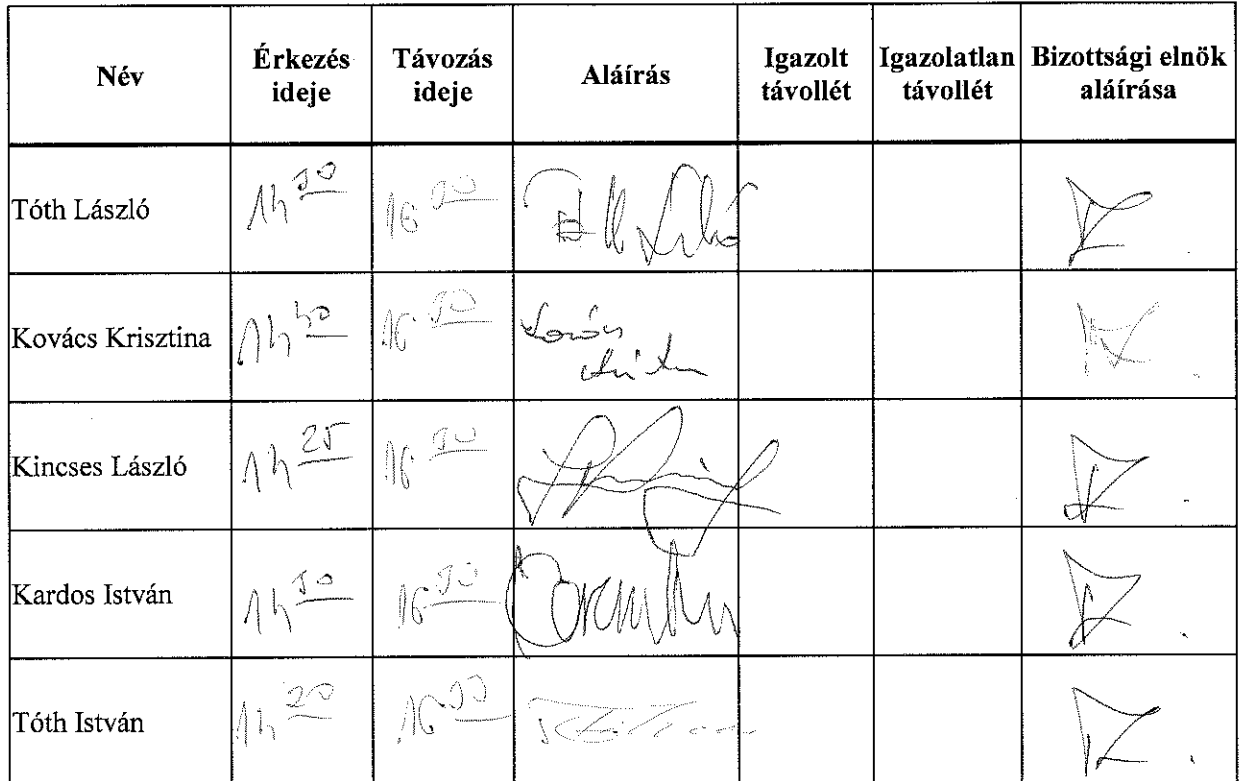 Név Érkezés ideje Távozás ideje Aláírás Igazolt távollét Igazolatlan távollét Bizottsági elnök aláírása
Tóth László 14 30 16 30
Kovács Krisztina 14 40 16 30
Kincses László 14 25 16 30
Kardos István 14 30 16 30
Tóth István 14 20 16 30